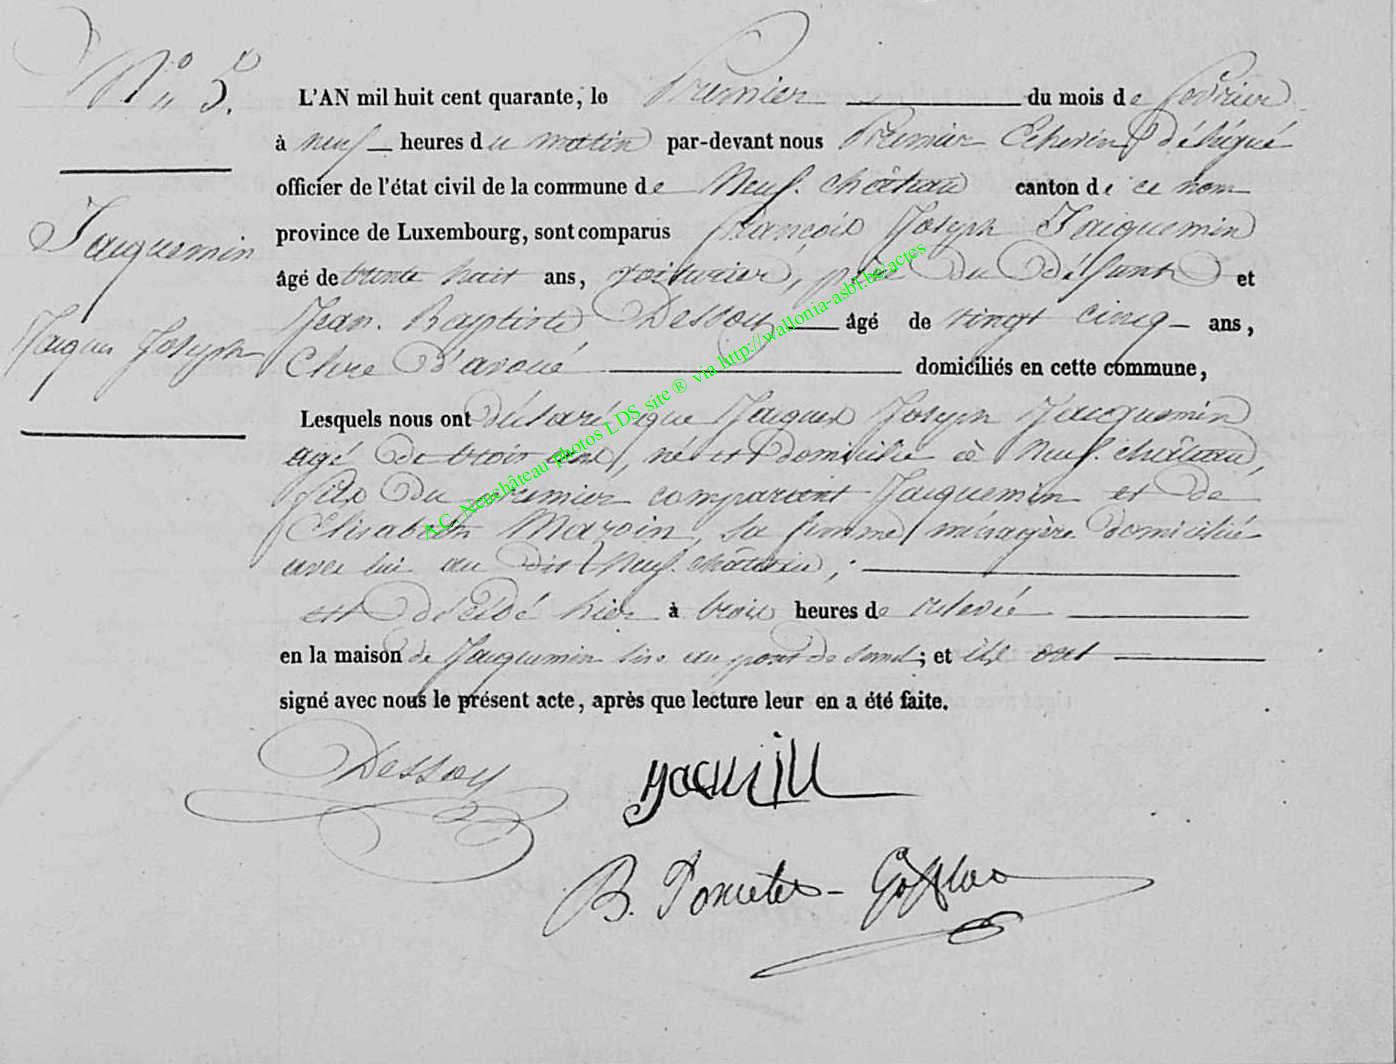 N° 5.
Jacquemin
Jacques Joseph
L'AN mil huit cent quarante, le Premier du mois de février
à neuf heures du matin par-devant nous Premier Echevin délégué
officier de l'état civil de la commune de Neufchâteau canton de ce nom
province de Luxembourg, sont comparus françois Joseph Jacquemin
âgé de trente huit ans, voiturier, père du défunt et
Jean Baptiste Dessoy âgé de vingt cinq ans,
Clerc d'avoué domiciliés en cette commune,
Lesquels nous ont déclaré que Jacques Joseph Jacquemin
agé de trois ans, né et domicilié à Neufchâteau,
fils du premier comparant Jacquemin et de
Elisabeth sa femme, ménagère domiciliée
avec lui au dit Neufchâteau;
est décédé hier à trois heures de relevée
en la maison de Jacquemin sise au pont de ; et ils ont
signé avec nous le présent acte, après que lecture leur en a été faite.
Dessoy
B.
A.C. Neufchâteau photos LDS site ® via http://wallonia-asbl.be/actes